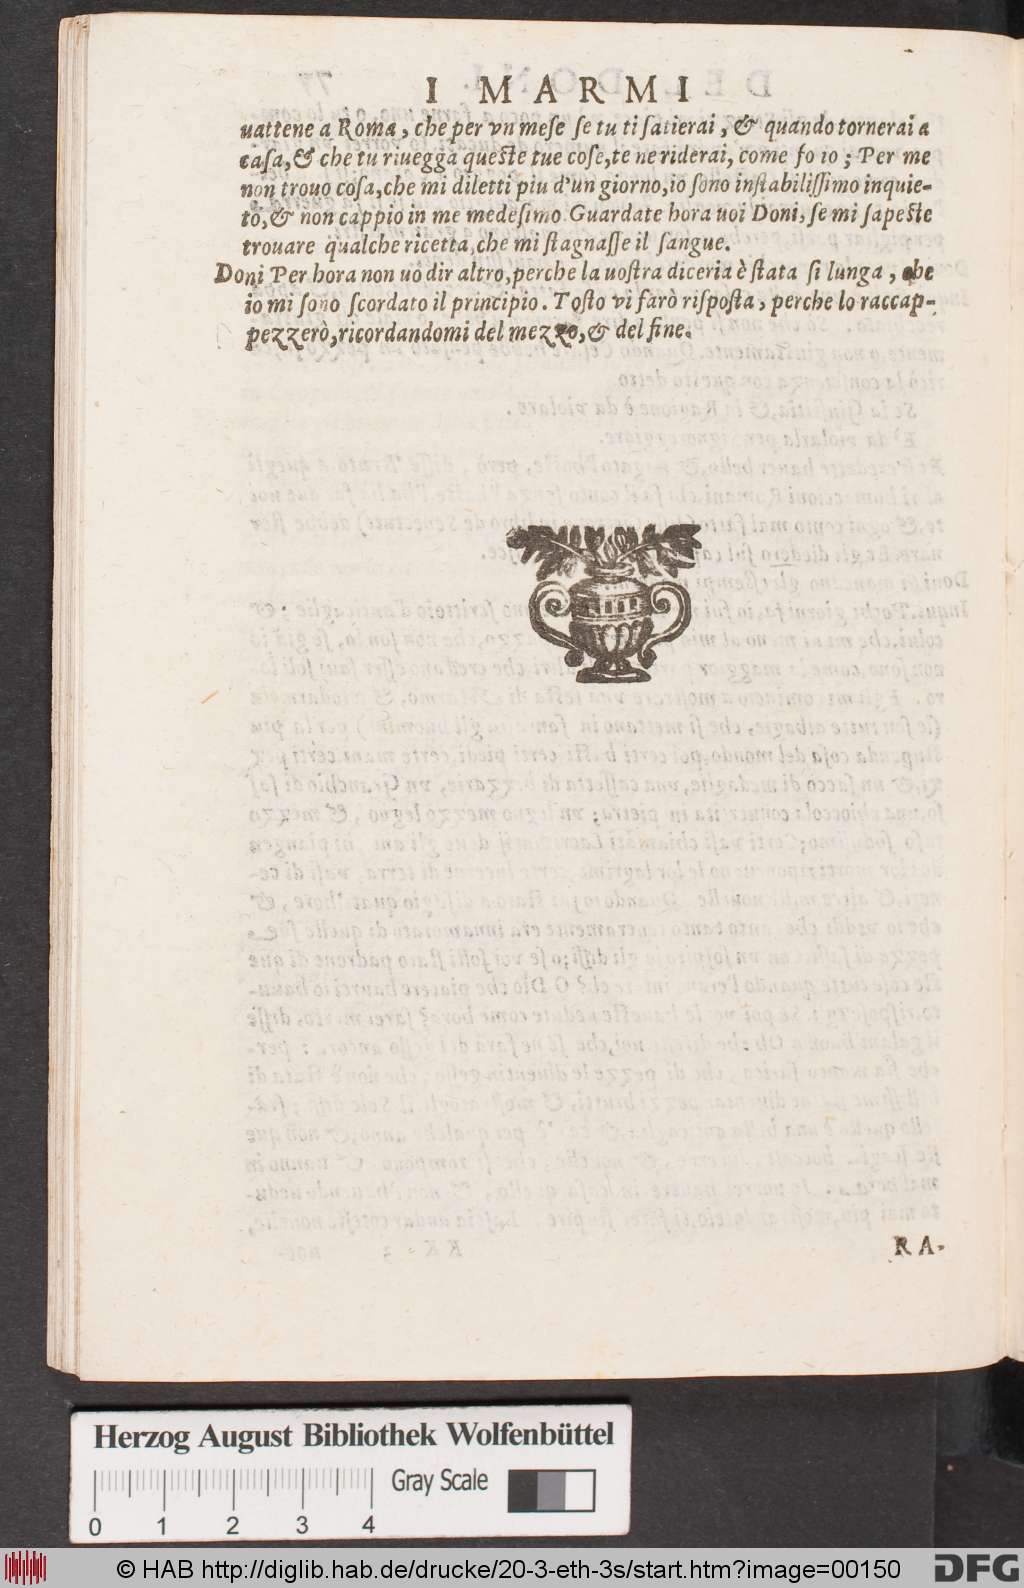 I MARMI
uattene a Roma, che per vn mese se tu ti satierai, & quando tornerai a
casa, & che tu riuegga queste tue cose, te ne riderai, come fo io; Per me
non trouo cosa, che mi diletti piu d'un giorno, io sono instabilissimo inquie-
to, & non cappio in me medesimo. Guardate hora uoi Doni, se mi sapeste
trouare qualche ricetta, che mi stagnasse il sangue.
Doni Per hora non uò dir altro, perche la uostra diceria è stata si lunga, che
io mi sono scordato il principio. Tosto vi farò risposta, perche lo raccap-
pezzerò, ricordandomi del mezzo, & del fine.
RA-
Herzog August Bibliothek Wolfenbüttel
Gray Scale
0 1 2 3 4
© HAB http://diglib.hab.de/drucke/20-3-eth-3s/start.htm?image=00150
DFG